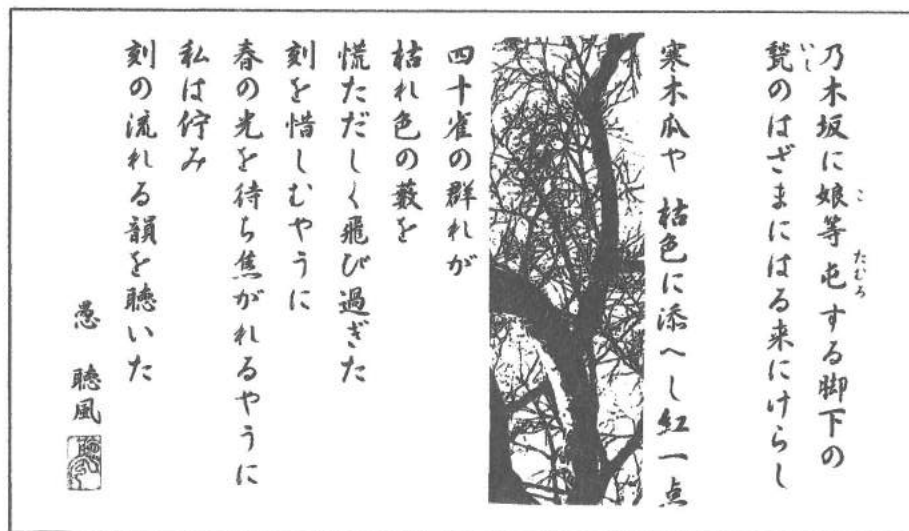 乃木坂に娘等屯する脚下の
甃のはざまにはる来にけらし
寒木瓜や 枯色に添へし紅一点
四十雀の群れが
枯れ色の藪を
慌ただしく飛び過ぎた
刻を惜しむやうに
春の光を待ち焦がれるやうに
私は佇み
刻の流れる韻を聴いた
愚 聴風